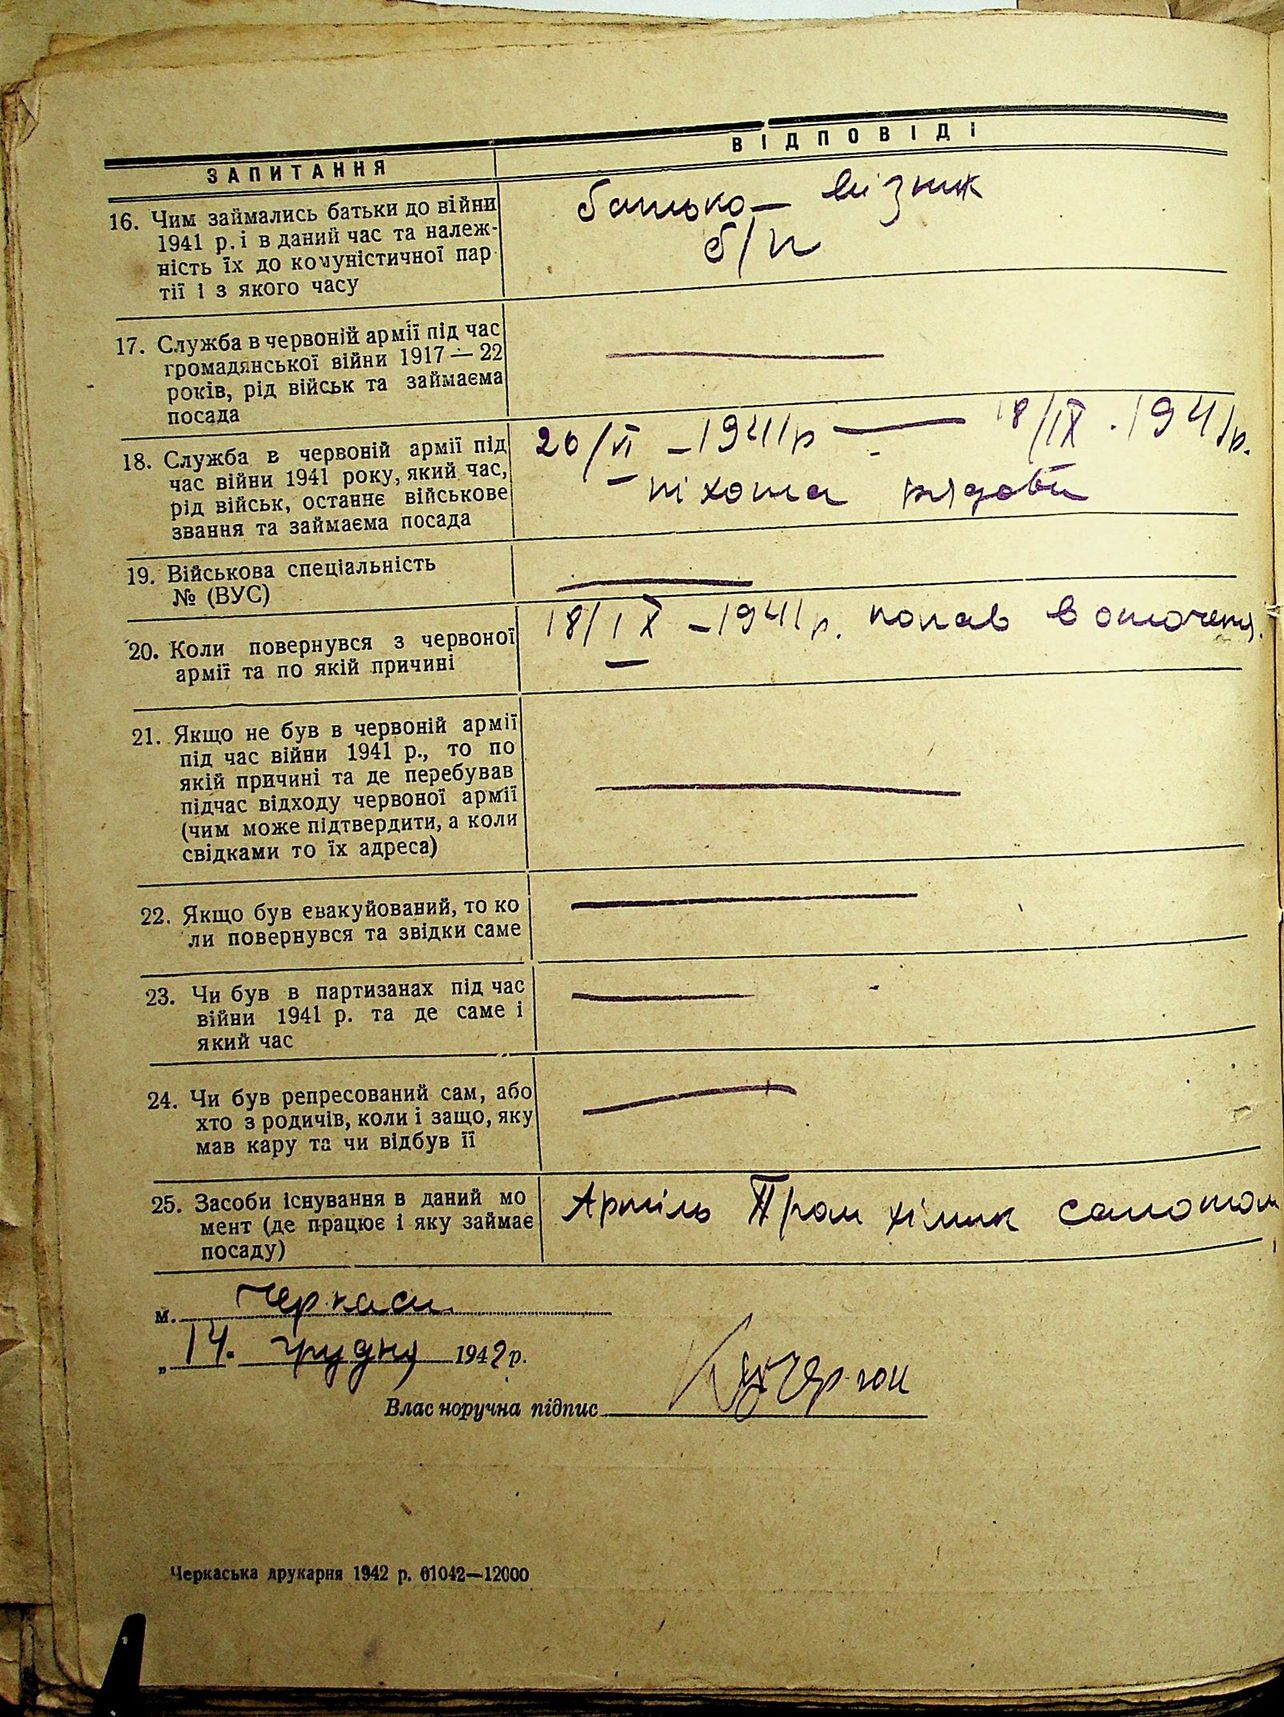 ЗАПИТАННЯ
ВІДПОВІДІ
16. Чим займались батьки до війни
1941 р. і в даний час та належ-
ність їх до комуністичної пар
тії і з якого часу
батько — візник
б/п
17. Служба в червоній армії під час
громадянської війни 1917 — 22
років, рід військ та займаєма
посада
—
18. Служба в червоній армії під
час війни 1941 року, який час,
рід військ, останнє військове
звання та займаєма посада
20/VI – 1941 р — 18/IX . 1941 р.
– піхота рядовий
19. Військова спеціальність
№ (ВУС)
—
20. Коли повернувся з червоної
армії та по якій причині
18/IX – 1941 р. попав в оточення.
—
21. Якщо не був в червоній армії
під час війни 1941 р., то по
якій причині та де перебував
підчас відходу червоної армії
(чим може підтвердити, а коли
свідками то їх адреса)
—
22. Якщо був евакуйований, то ко
ли повернувся та звідки саме
—
23. Чи був в партизанах під час
війни 1941 р. та де саме і
який час
—
24. Чи був репресований сам, або
хто з родичів, коли і защо, яку
мав кару та чи відбув її
—
25. Засоби існування в даний мо
мент (де працює і яку займає
посаду)
Артіль Пром хімик
м. Черкаси
„ 14. грудня 1942 р.
Влас норучна підпис
Черкаська друкарня 1942 р. 61042—12000